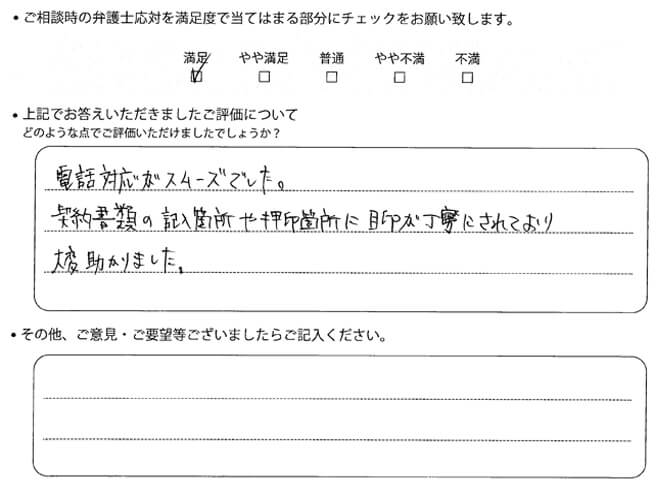 • ご相談時の弁護士応対を満足度で当てはまる部分にチェックをお願い致します。
満足 やや満足 普通 やや不満 不満
☑ □ □ □ □
• 上記でお答えいただきましたご評価について
どのような点でご評価いただけましたでしょうか？
電話対応がスムーズでした。
契約書類の記入箇所や押印箇所に目印が丁寧にされており
大変助かりました。
• その他、ご意見・ご要望等ございましたらご記入ください。